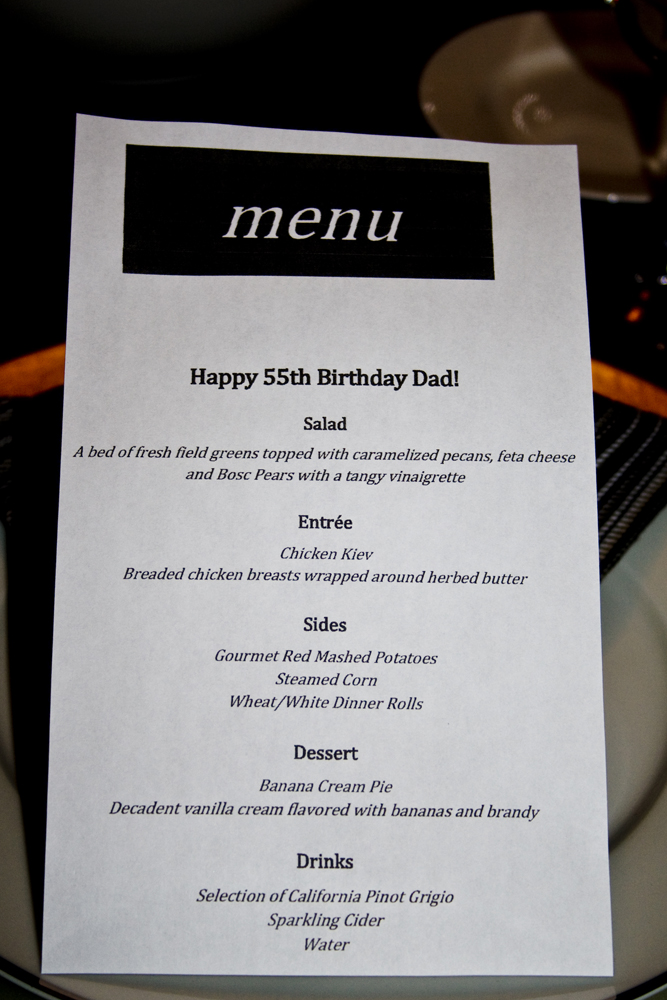 menu
Happy 55th Birthday Dad!
Salad
A bed of fresh field greens topped with caramelized pecans, feta cheese
and Bosc Pears with a tangy vinaigrette
Entrée
Chicken Kiev
Breaded chicken breasts wrapped around herbed butter
Sides
Gourmet Red Mashed Potatoes
Steamed Corn
Wheat/White Dinner Rolls
Dessert
Banana Cream Pie
Decadent vanilla cream flavored with bananas and brandy
Drinks
Selection of California Pinot Grigio
Sparkling Cider
Water